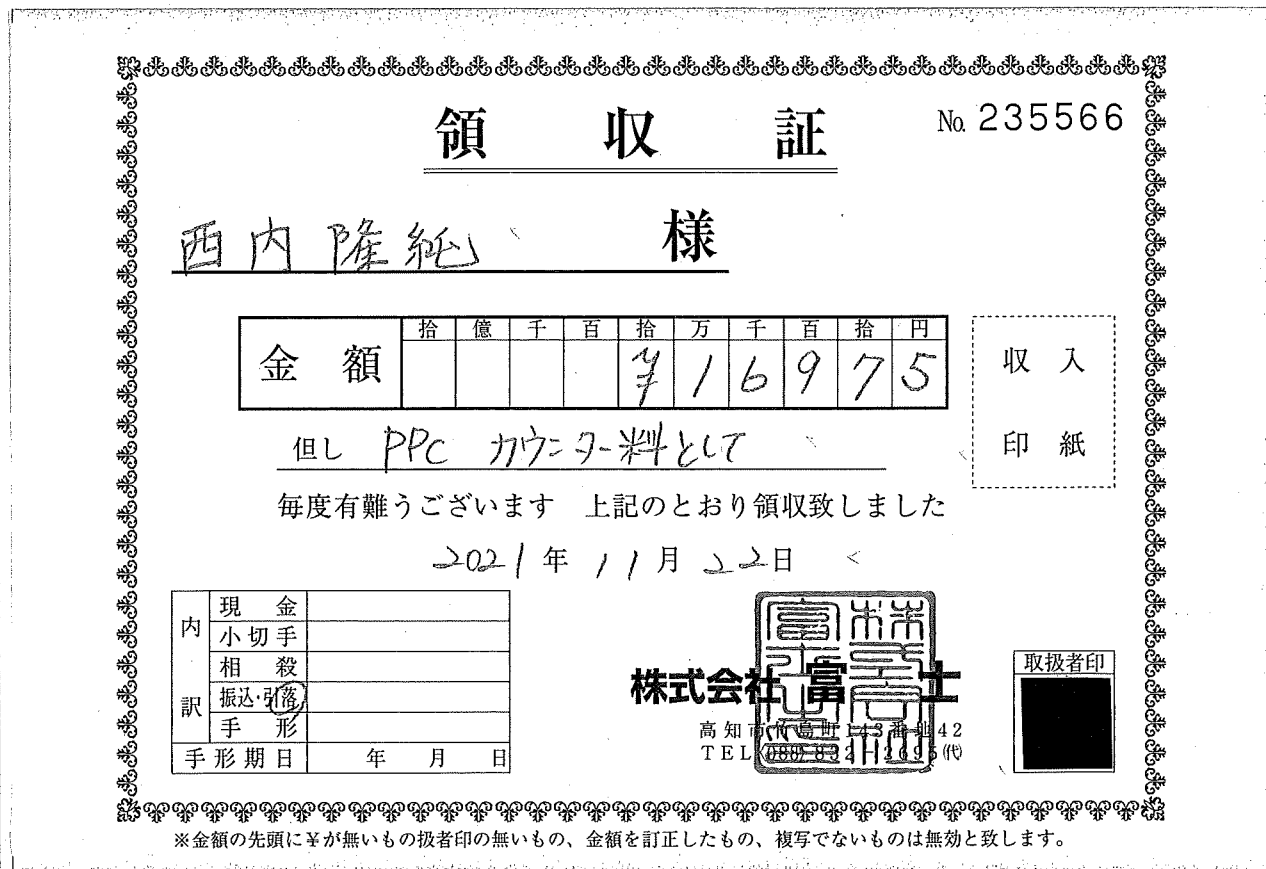 領収証
No. 235566
西内隆純 様
金額 拾 億 千 百 拾 万 千 百 拾 円
¥16975
収入
印紙
但し PPC カウンター料として
毎度有難うございます 上記のとおり領収致しました
2021年11月22日
内訳
現金
小切手
相殺
振込・引落
手形
手形期日 年 月 日
株式会社 富士
高知市竹島町143番地42
TEL(088)832-2695(代)
取扱者印
※金額の先頭に¥が無いもの扱者印の無いもの、金額を訂正したもの、複写でないものは無効と致します。